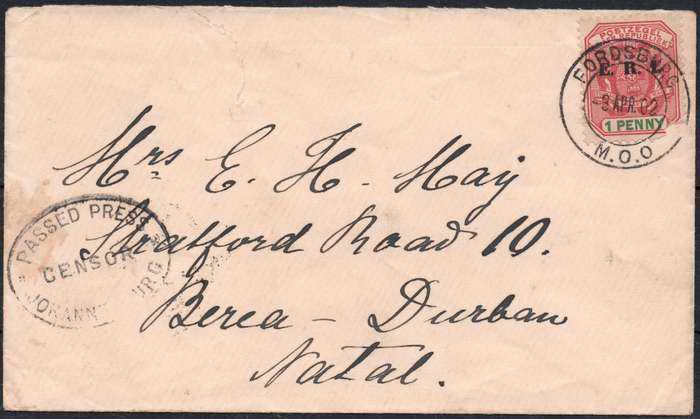 POSTZEGEL
E. R. I.
1 PENNY
FORDSBURG
APR. 02
M.O.O
Mrs E. H. May
Stratford Road 10.
Berea – Durban
Natal.
PASSED PRESS
CENSOR